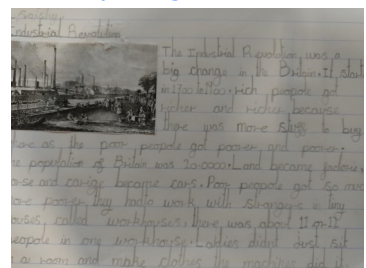 Industrial Revolution
The Industrial Revolution was a
big change in the Britain. It start
in 1700 to 1800. rich peopole got
richer and richer because
there was more stuff to buy
where as the poor peopole got poorer and poorer.
population of Britain was 20.0000. Land became factories,
and carige became cars. Poor peopole got so much
more poorer they had to work with strangers in tiny
houses, called workhouses. there was about 11 or 12
peopole in one workhouse. Ladies didnt just sit
in a room and make clothes the machines did it